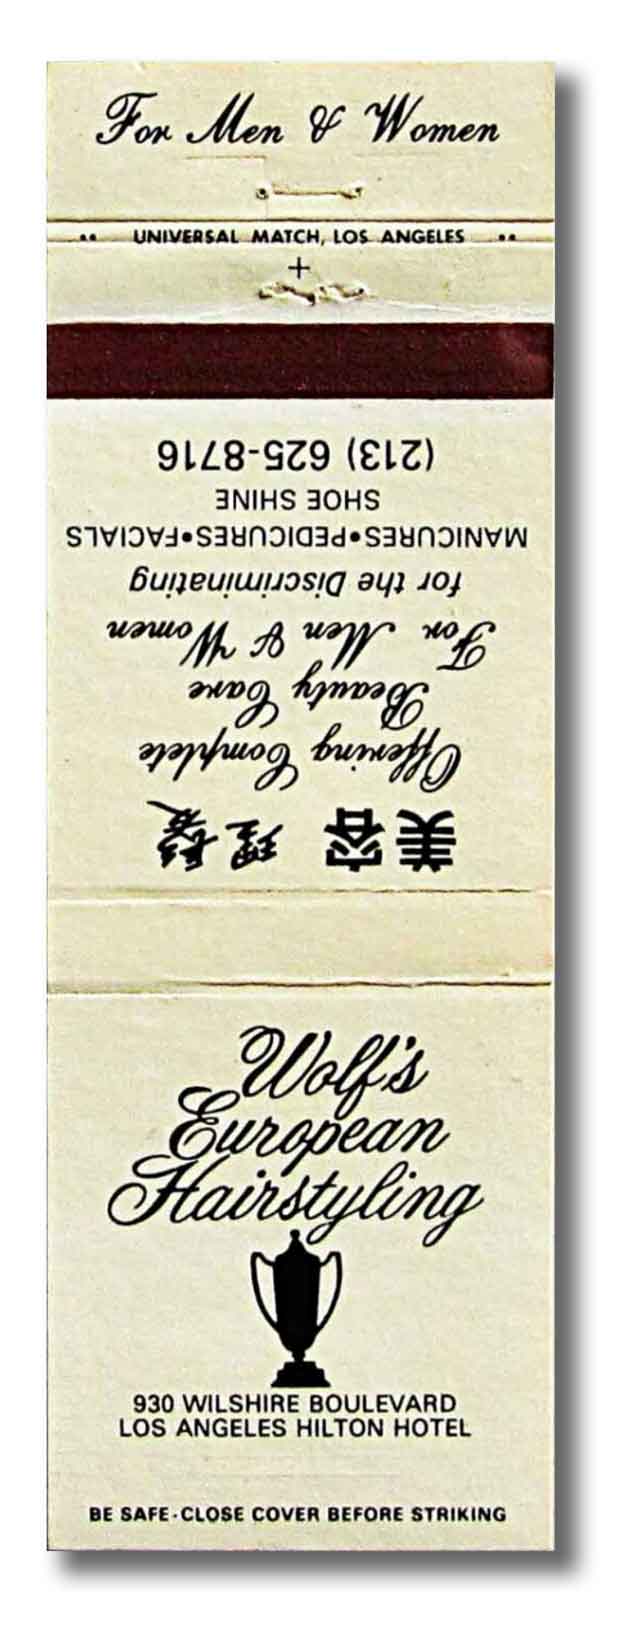 For Men & Women
UNIVERSAL MATCH, LOS ANGELES
美容 理髪
Offering Complete
Beauty Care
For Men & Women
for the Discriminating
MANICURES•PEDICURES•FACIALS
SHOE SHINE
(213) 625-8716
Wolf's
European
Hairstyling
930 WILSHIRE BOULEVARD
LOS ANGELES HILTON HOTEL
BE SAFE-CLOSE COVER BEFORE STRIKING